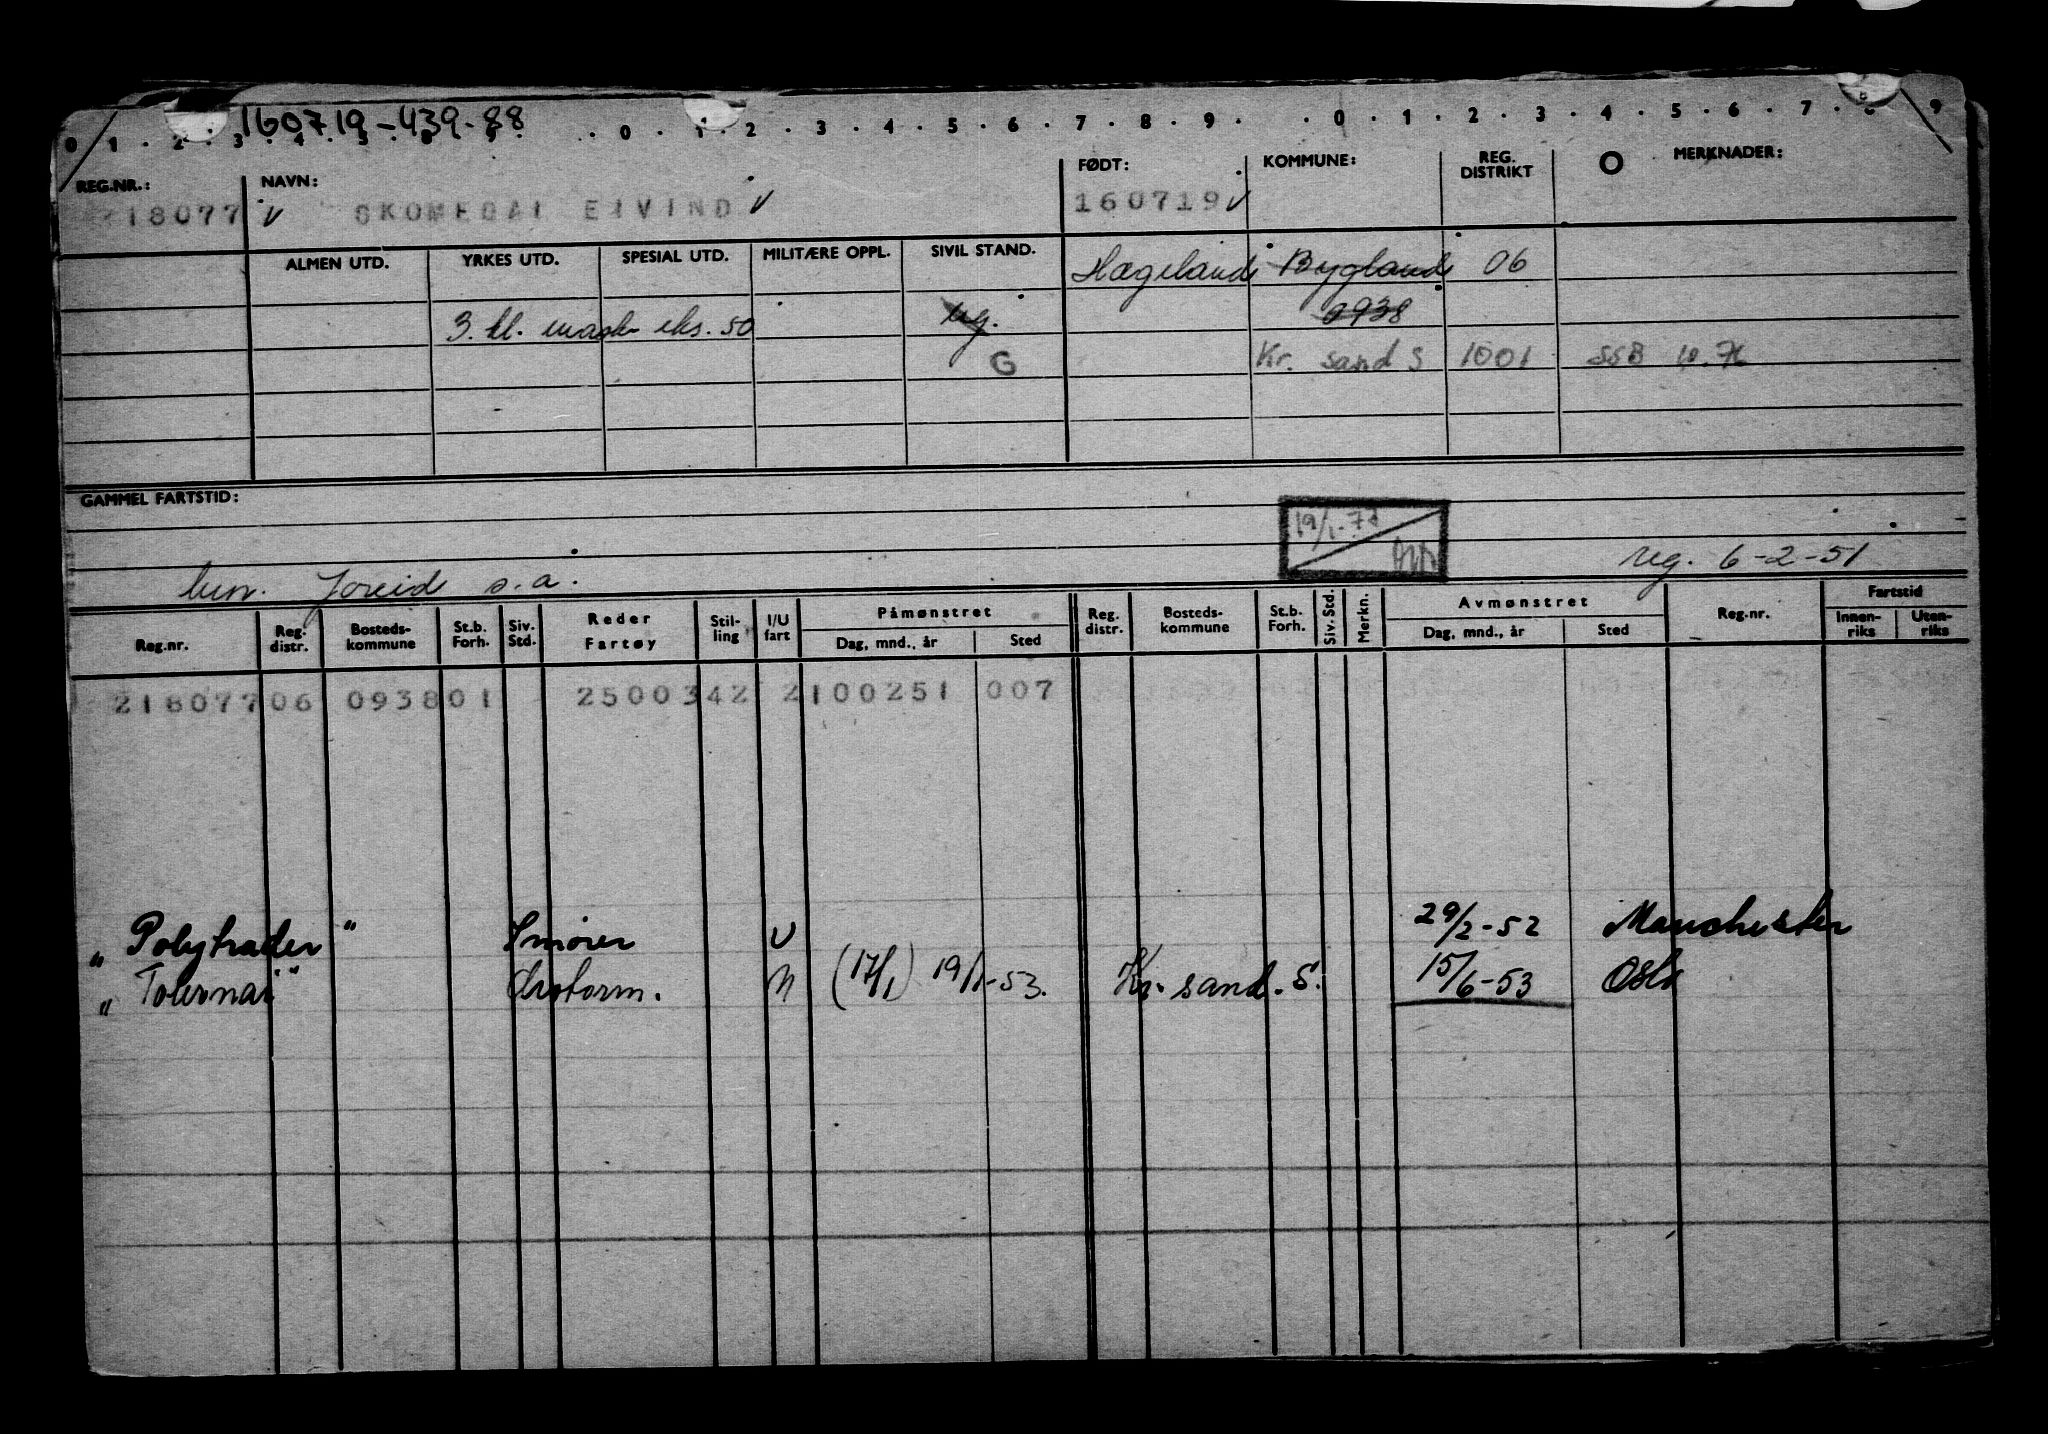 160719-439-88
0 1 2 3 4 5 6 7 8 9 0 1 2 3 4 5 6 7 8 9 0 1 2 3 4 5 6 7 8 9
REG.NR.: NAVN: FØDT: KOMMUNE: REG. DISTRIKT MERKNADER:
218077 SKOMEDAL EIVIND 160719
ALMEN UTD. YRKES UTD. SPESIAL UTD. MILITÆRE OPPL. SIVIL STAND. Hægeland Bygland 06
3. kl. mask eks. 50 ug. 0938
G Kr. sand S 1001 SSB 10.76
GAMMEL FARTSTID:
19/1-72
s.a. reg. 6-2-51
Reg.nr. Reg. distr. Bosteds-kommune St.b. Forh. Siv. Std. Reder Fartøy Stil-ling I/U fart Påmønstret Dag, mnd., år Sted Reg. distr. Bosteds-kommune St.b. Forh. Siv. Std. Merkn. Avmønstret Dag, mnd., år Sted Reg.nr. Fartstid Innen-riks Uten-riks
218077 06 0938 01 2500342 2 100251 007
" Polytrader " Smører U 29/2-52 Manchester
" Tolernai " Ørstorm. N (17/1) 19/1-53. Kr. sand. S. 15/6-53 Oslo